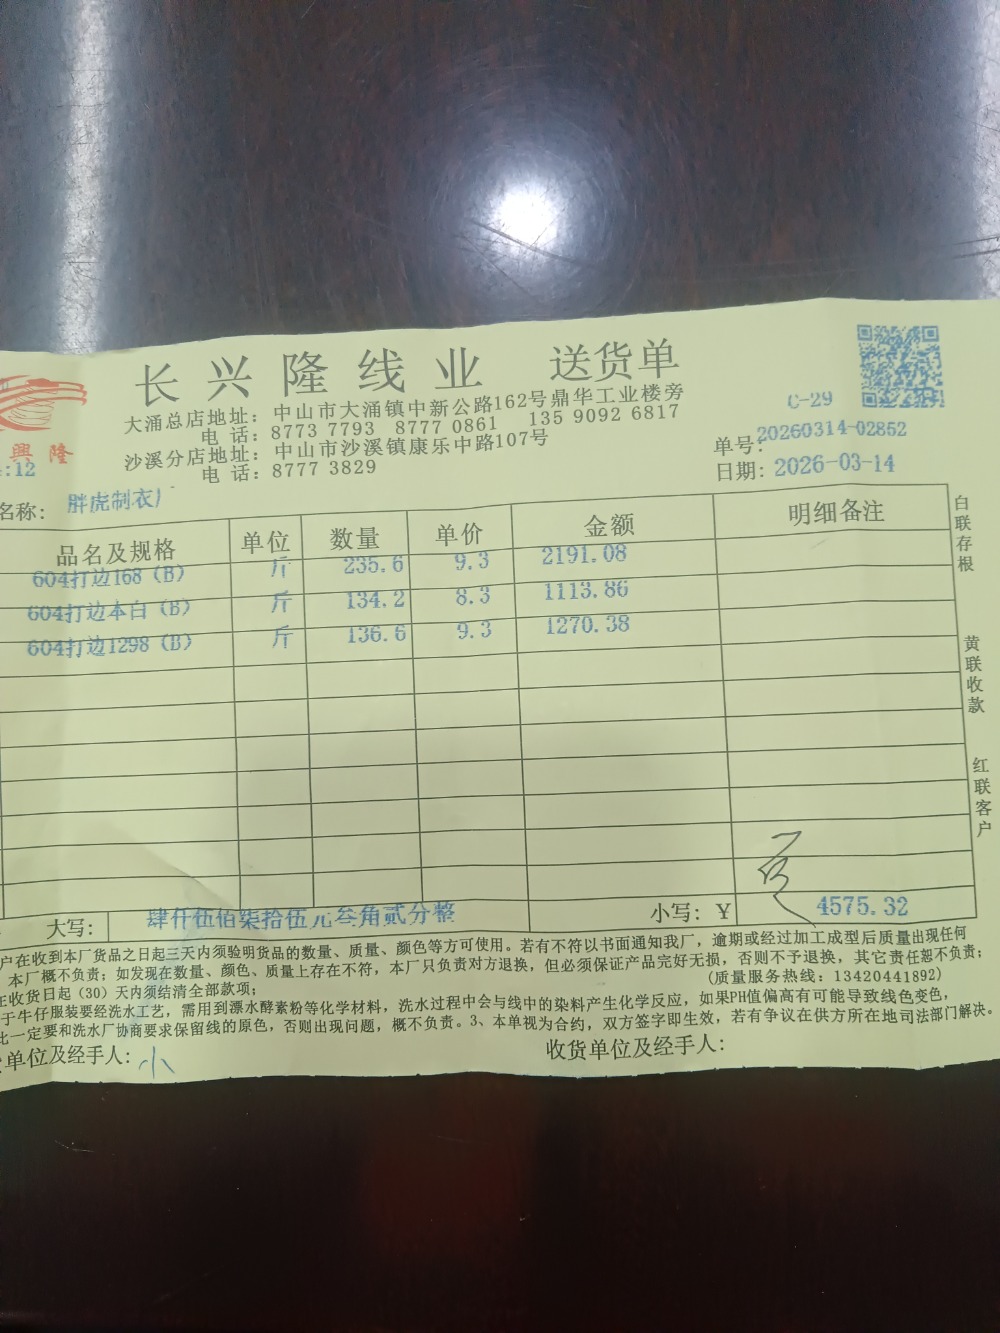 长兴隆线业 送货单
C-29
大涌总店地址：中山市大涌镇中新公路162号鼎华工业楼旁
电 话：8773 7793 8777 0861 135 9092 6817
沙溪分店地址：中山市沙溪镇康乐中路107号
电 话：8777 3829
興隆
:12
单号：20260314-02852
日期：2026-03-14
名称：胖虎制衣厂
品名及规格 单位 数量 单价 金额 明细备注
604打边168（B） 斤 235.6 9.3 2191.08
604打边本白（B） 斤 134.2 8.3 1113.86
604打边1298（B） 斤 136.6 9.3 1270.38
白联存根
黄联收款
红联客户
大写：肆仟伍佰柒拾伍元叁角贰分整 小写：￥4575.32
户在收到本厂货品之日起三天内须验明货品的数量、质量、颜色等方可使用。若有不符以书面通知我厂，逾期或经过加工成型后质量出现任何
本厂概不负责；如发现在数量、颜色、质量上存在不符，本厂只负责对方退换，但必须保证产品完好无损，否则不予退换，其它责任恕不负责；
在收货日起（30）天内须结清全部款项； （质量服务热线：13420441892）
于牛仔服装要经洗水工艺，需用到漂水酵素粉等化学材料，洗水过程中会与线中的染料产生化学反应，如果PH值偏高有可能导致线色变色，
比一定要和洗水厂协商要求保留线的原色，否则出现问题，概不负责。3、本单视为合约，双方签字即生效，若有争议在供方所在地司法部门解决。
单位及经手人：小 收货单位及经手人：